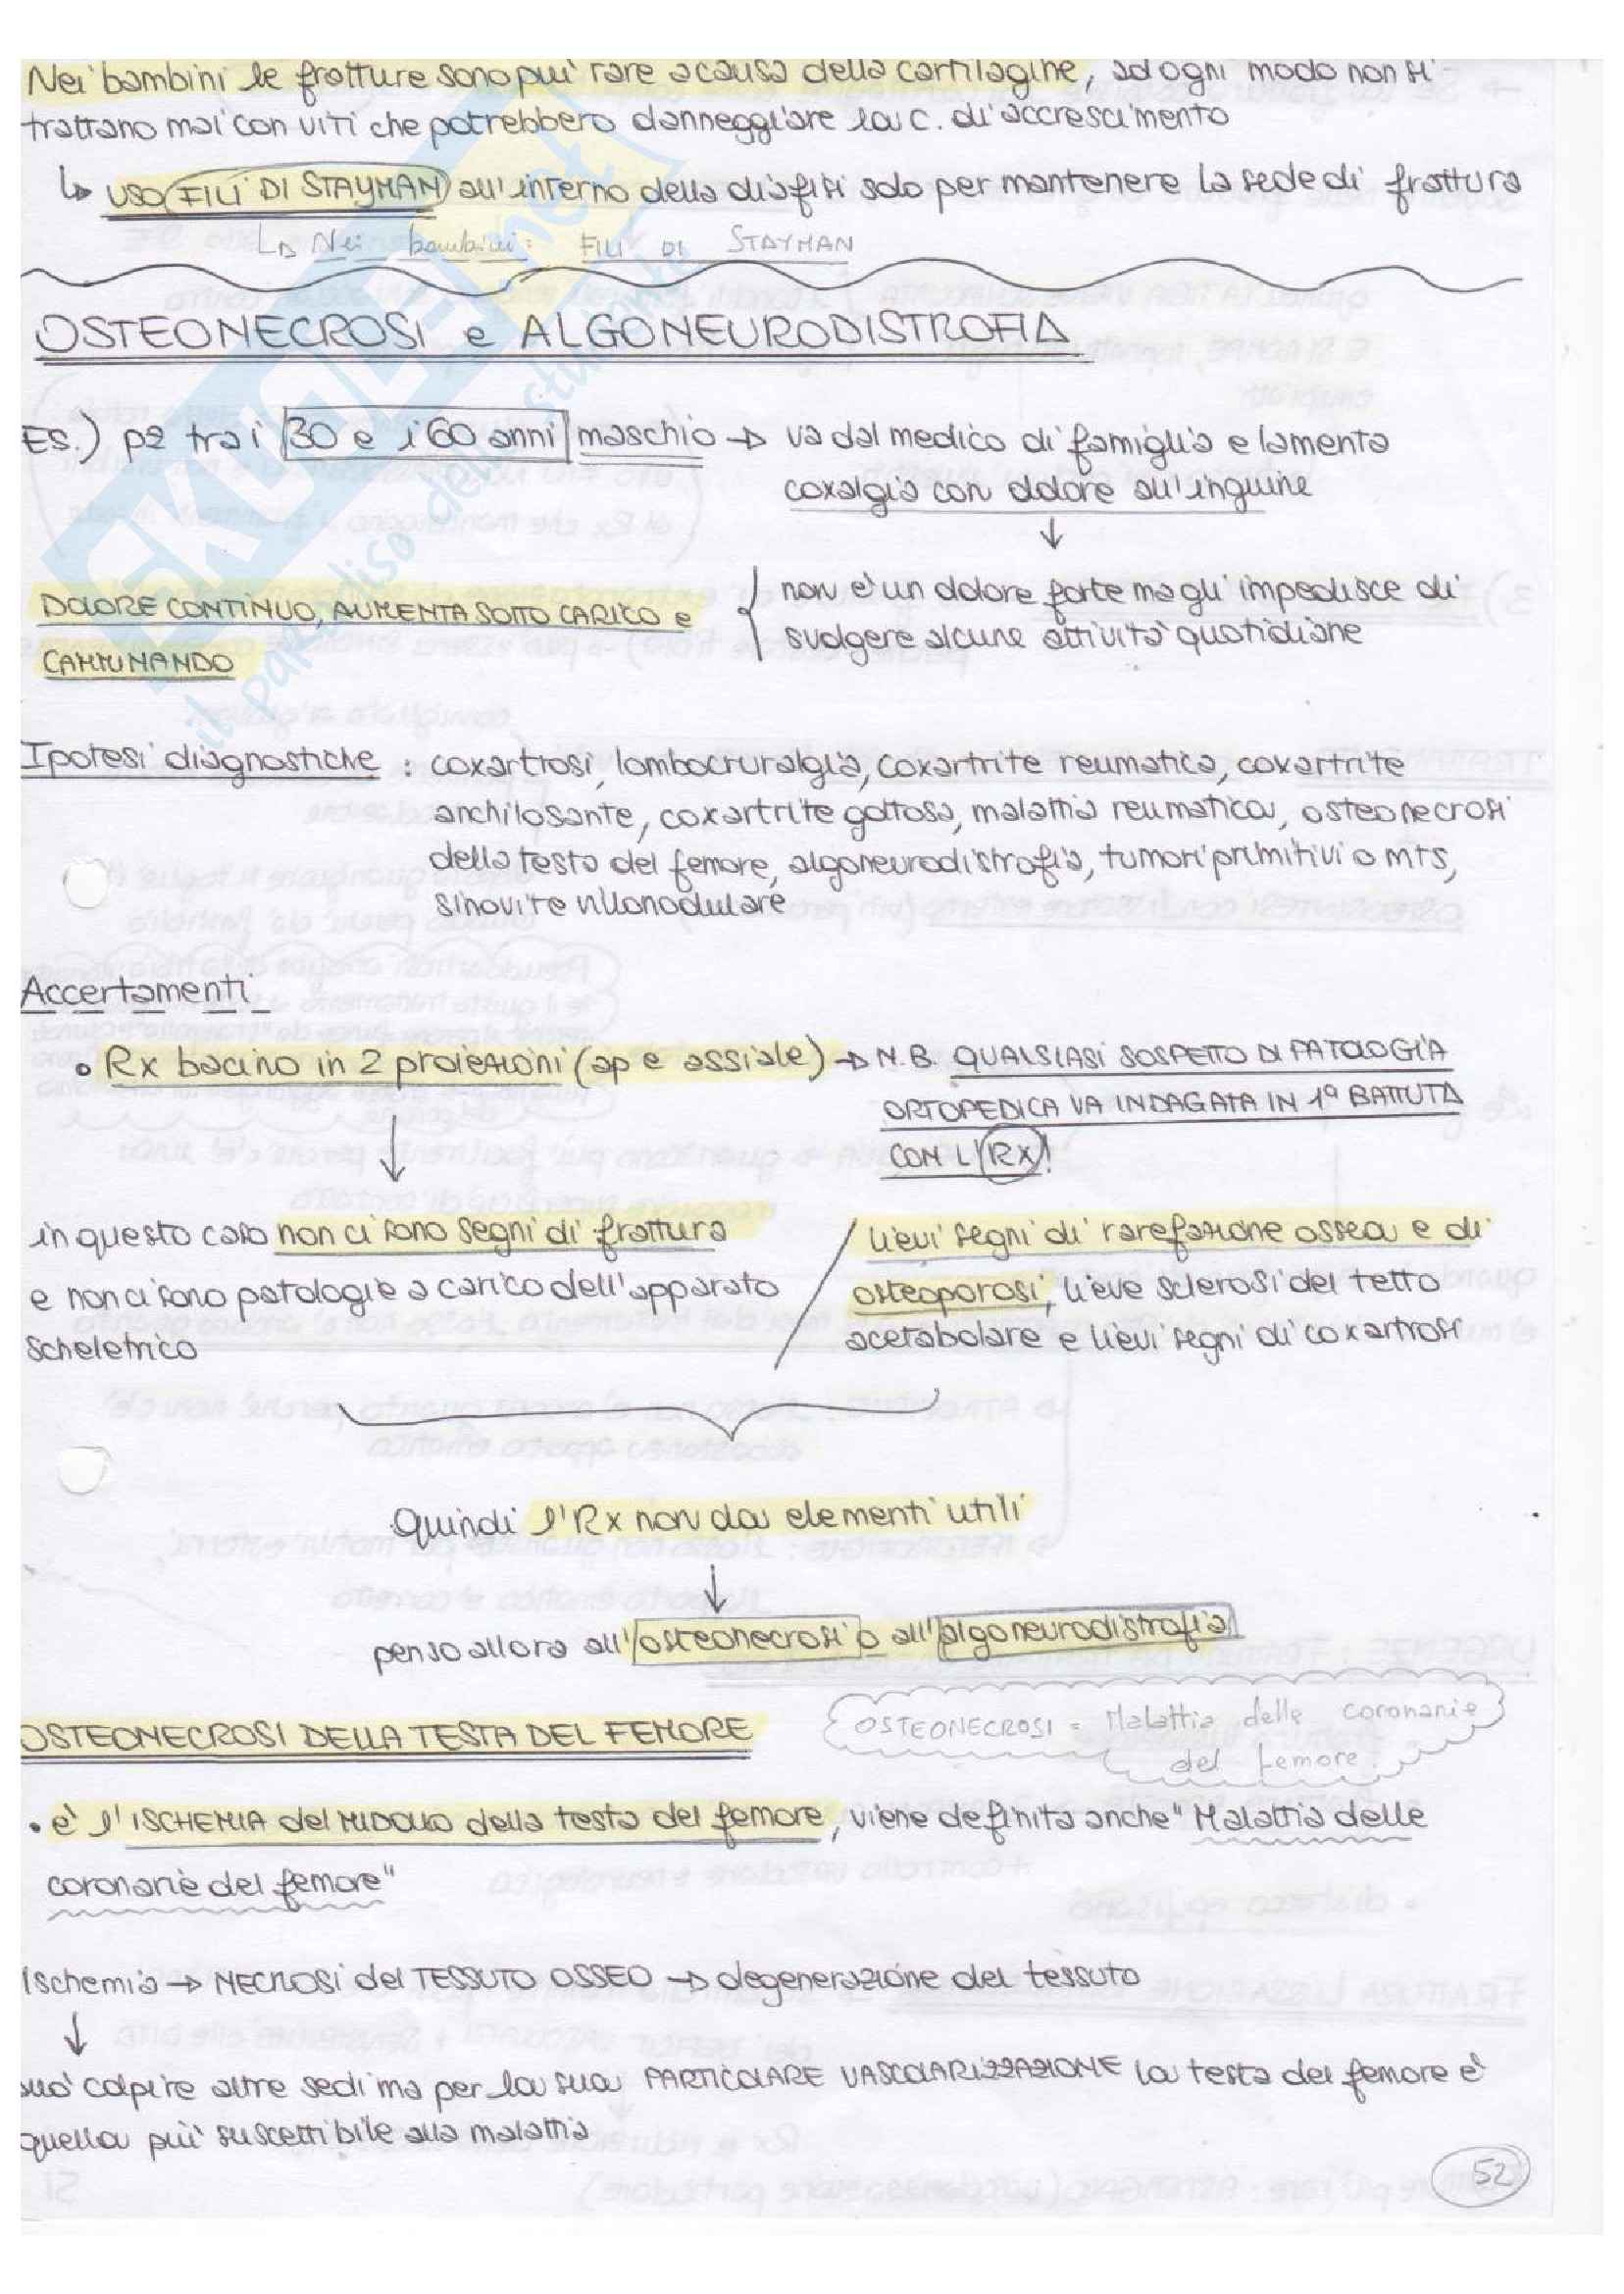 Nei bambini le fratture sono più rare a causa della cartilagine, ad ogni modo non si
trattano mai con viti che potrebbero danneggiare la c. di accrescimento
↳ USO FILI DI STAYMAN all'interno della diafisi solo per mantenere la sede di frattura
↳ Nei bambini: FILI DI STAYMAN
OSTEONECROSI e ALGONEURODISTROFIA
ES.) pz tra i 30 e i 60 anni maschio → va dal medico di famiglia e lamenta
coxalgia con dolore all'inguine
↓
DOLORE CONTINUO, AUMENTA SOTTO CARICO e
CAMMINANDO
non è un dolore forte ma gli impedisce di
svolgere alcune attività quotidiane
Ipotesi diagnostiche : coxartrosi, lombocruralgia, coxartrite reumatica, coxartrite
anchilosante, coxartrite gottosa, malattia reumatica, osteonecrosi
della testa del femore, algoneurodistrofia, tumori primitivi o MTS,
sinovite villonodulare
Accertamenti
• Rx bacino in 2 proiezioni (ap e assiale) → N.B. QUALSIASI SOSPETTO DI PATOLOGIA
ORTOPEDICA VA INDAGATA IN 1ª BATTUTA
CON L'RX!
↓
in questo caso non ci sono segni di frattura
e non ci sono patologie a carico dell'apparato
scheletrico
lievi segni di rarefazione ossea e di
osteoporosi, lieve sclerosi del tetto
acetabolare e lievi segni di coxartrosi
Quindi l'Rx non da elementi utili
↓
penso allora all'osteonecrosi o all'algoneurodistrofia
OSTEONECROSI DELLA TESTA DEL FEMORE
OSTEONECROSI = Malattia delle coronarie
del femore
• è l'ISCHEMIA del MIDOLLO della testa del femore, viene definita anche "Malattia delle
coronarie del femore"
Ischemia → NECROSI del TESSUTO OSSEO → degenerazione del tessuto
↓
può colpire altre sedi ma per la sua PARTICOLARE VASCOLARIZZAZIONE la testa del femore è
quella più suscettibile alla malattia
52
SKUOLA.net
il paradiso dello studente